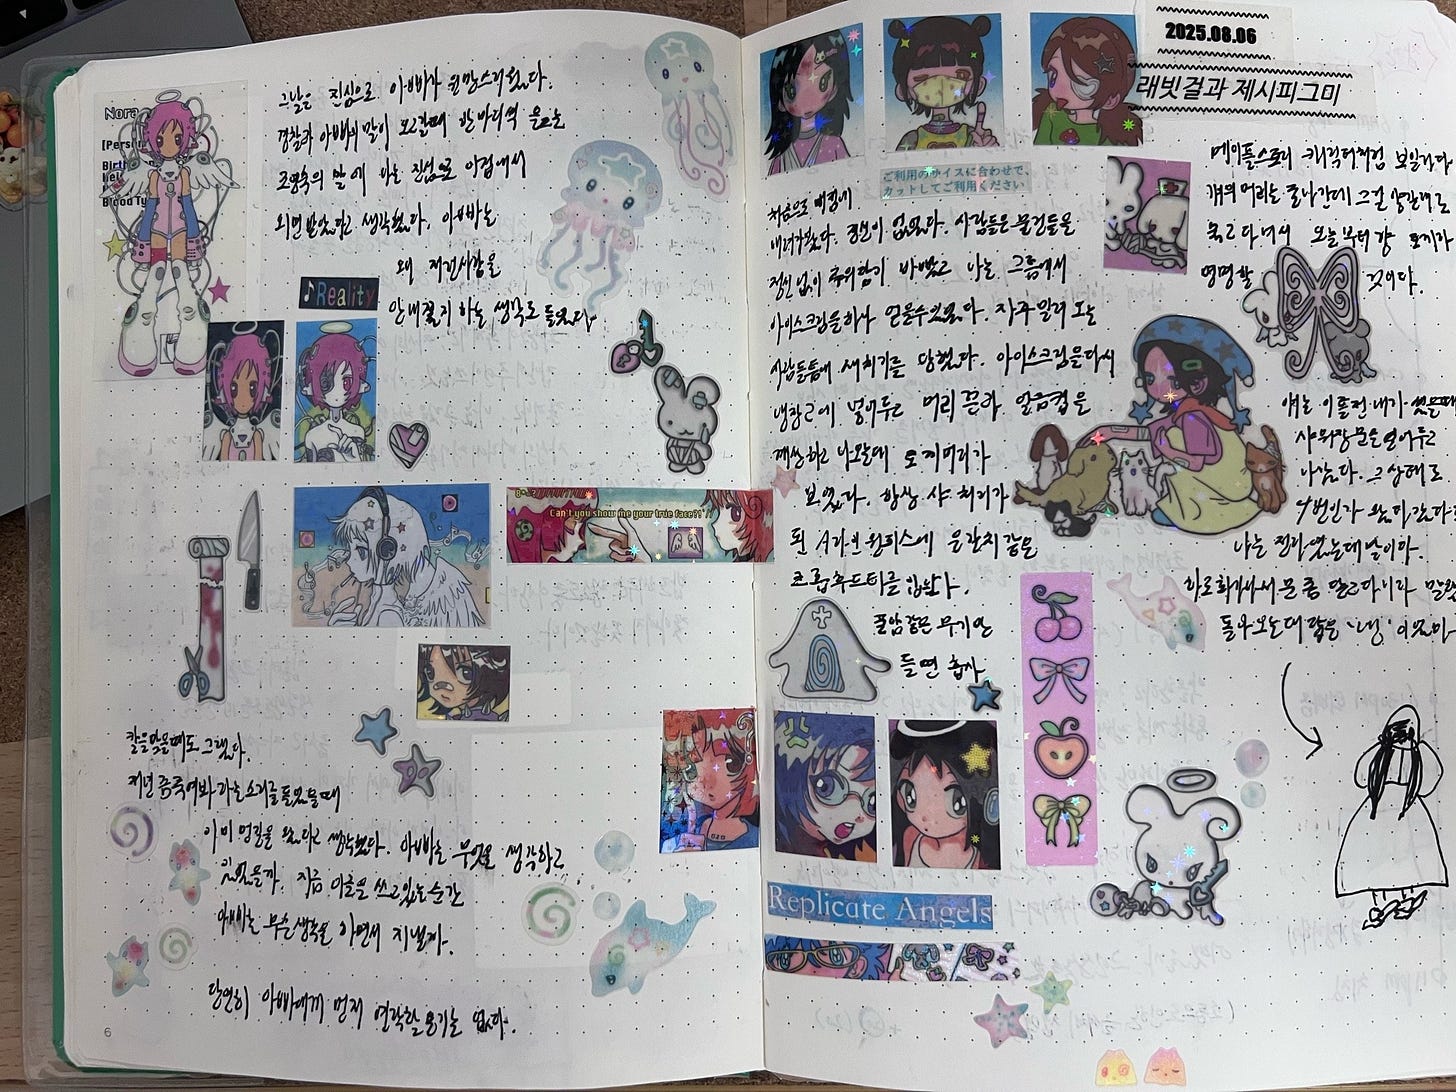 Nora
그날은 진심으로 아빠가 원망스러웠다.
경찰과 아빠의 말이 오고갈때 한마디씩 얹는
조영숙의 말에 나는 진심으로 이집에서
외면받았다고 생각했다. 아빠는
왜 재건사람을
♪Reality
안내쫓지 하는 생각도 들었다.
Can't you show me your true face?!
칼을맞을때도 그랬다.
저년 좀 죽여봐 라는 소리를 들었을때
이미 멍길을 왔다고 생각했다. 아빠는 무엇을 생각하고
있었을까. 지금 이글을 쓰고있는순간
아빠는 무슨생각을 하면서 지낼까.
당연히 아빠에게 먼저 연락할 용기는 없다.
6
2025.08.06
래빗걸과 제시피그미
ご利用のサイズに合わせて、
カットしてご利用ください
처음으로 매장에
내려가봤다. 정신이 없었다. 사람들은 물건들을
정신 없이 추의하기 바빴고 나는 그틈에서
아이스크림을 하나 얻을수 있었다. 자주 밀려 오는
사람들틈에 새치기를 당했다. 아이스크림을 다시
냉장고에 넣어두고 머리끈과 얼음컵을
계산하고 나올때 토끼머리가
보였다. 항상 샤 처리가
된 A라인 원피스에 은갈치같은
크롭후드티를 입었다.
폼암같은 무기만
들면 흡사
메이플스토리 캐릭터처럼 보일거다
걔의 머리는 줄나간데 그걸 양갈래로
묶고 다녀서 오늘부터 걍 토끼라
명명할 것이다.
얘는 이틀전 내가 씻을때
샤워장문을 열어두고
나갔다. 그상태로
4번인가 왔다갔다
나는 전라였는데 말이다.
바로 화가나서 문 좀 닫고다니라 말했
돌아오는 대답은 '넹' 이었다
Replicate Angels